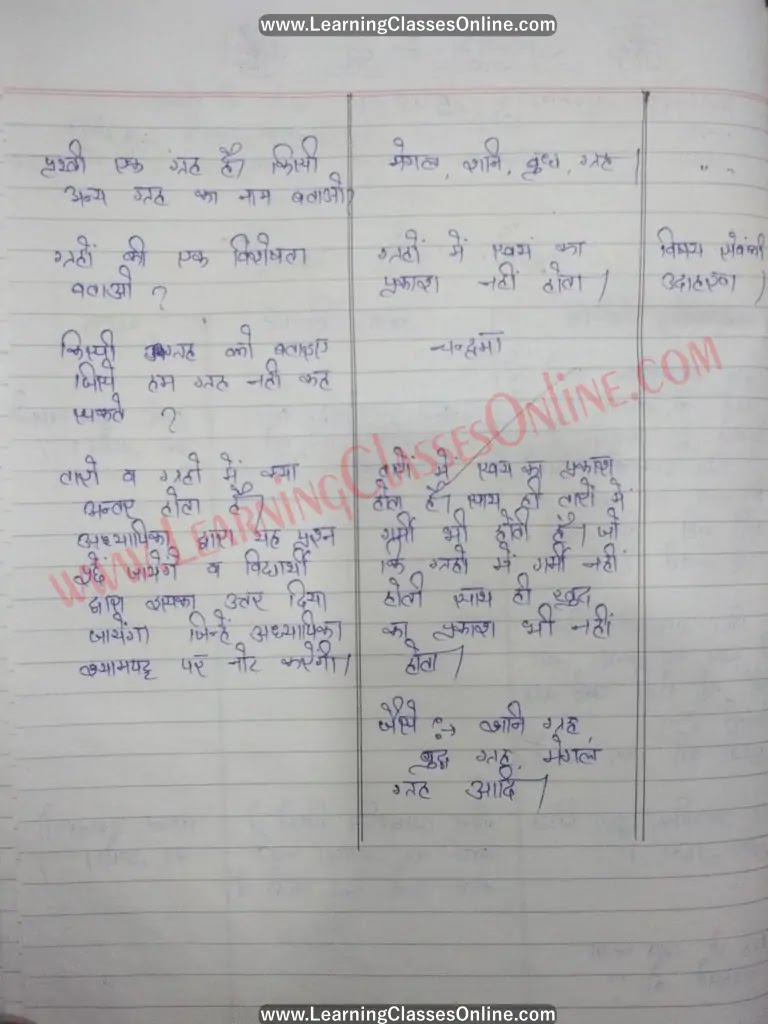 www.LearningClassesOnline.com
पृथ्वी एक ग्रह है। किसी
अन्य ग्रह का नाम बताओ?
मंगल, शनि, बुध, ग्रह।
" "
ग्रहों की एक विशेषता
बताओ ?
ग्रहों में स्वयं का
प्रकाश नहीं होता।
विषय संबंधी
उदाहरण।
किसी ग्रह को बताइए
जिसे हम ग्रह नही कह
सकते ?
चन्द्रमा
तारो व ग्रहो में क्या
अन्तर होता है।
अध्यापिका द्वारा यह प्रश्न
जायेंगे व विद्यार्थी
द्वारा इसका उत्तर दिया
जायेंगा जिन्हें अध्यापिका
श्यामपट्ट पर नोट करेगी।
तारों में स्वयं का प्रकाश
होता है। साथ ही तारो में
गर्मी भी होती है। जो
कि ग्रहो में गर्मी नहीं
होती साथ ही खुद
का प्रकाश भी नहीं
होता।
जैसे :→ शनि ग्रह
बुद्ध ग्रह, मंगल
ग्रह आदि।
www.LearningClassesOnline.com
www.LearningClassesOnline.com